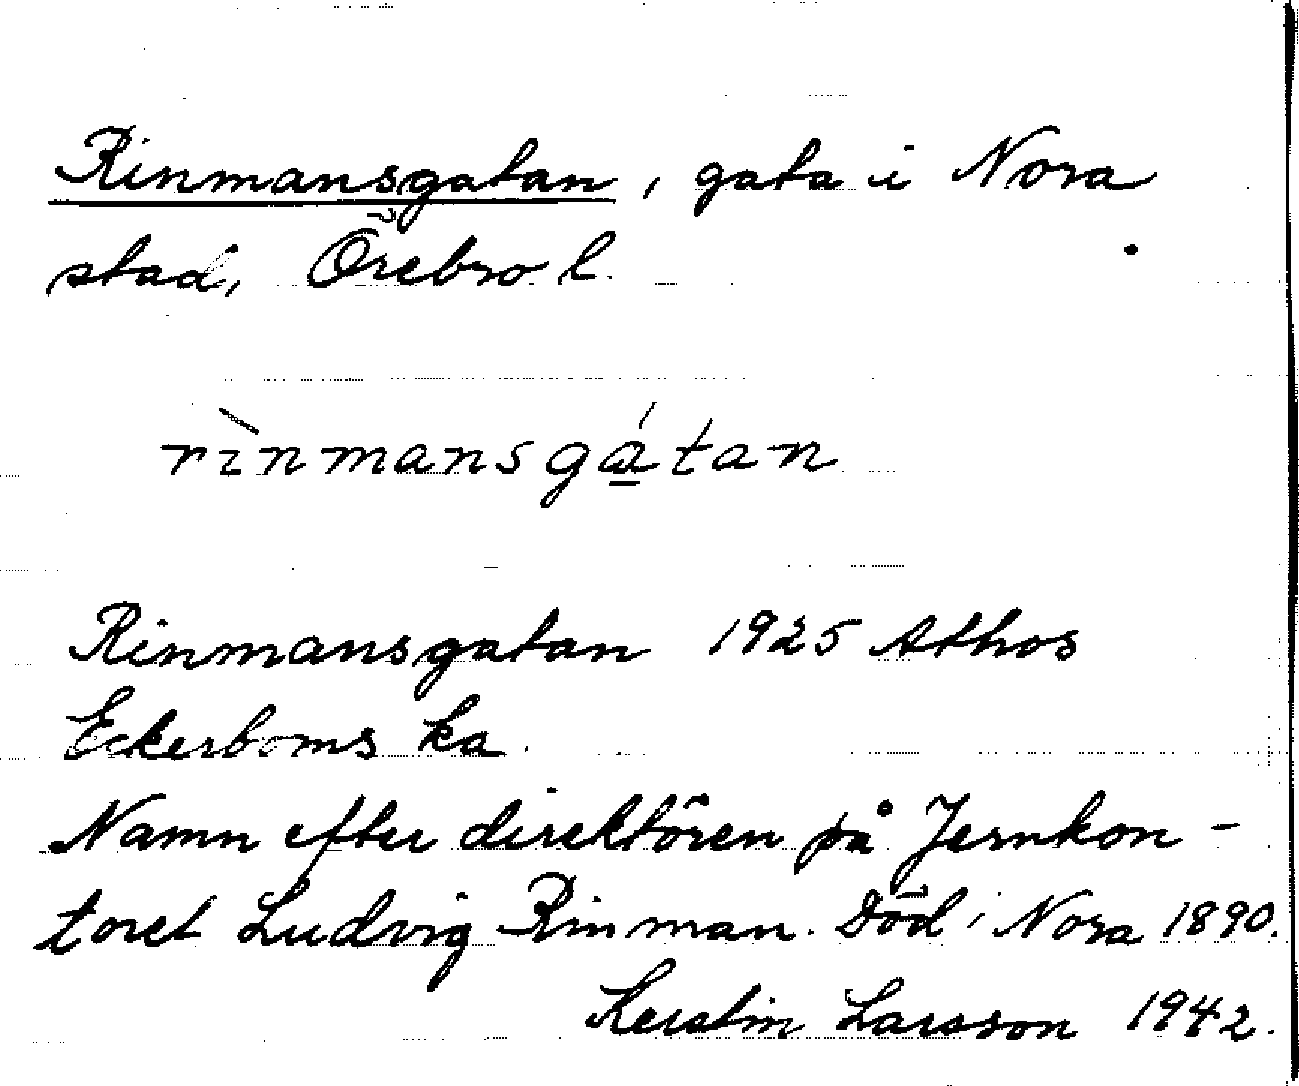 Rinmansgatan, gata i Nora
stad, Örebro l.
rìnmansgá̱tan
Rinmansgatan 1925 Athos
Eckerboms ka
Namn efter direktören på Jernkon-
toret Ludvig Rinman. Död i Nora 1890.
Kerstin Larsson 1942.